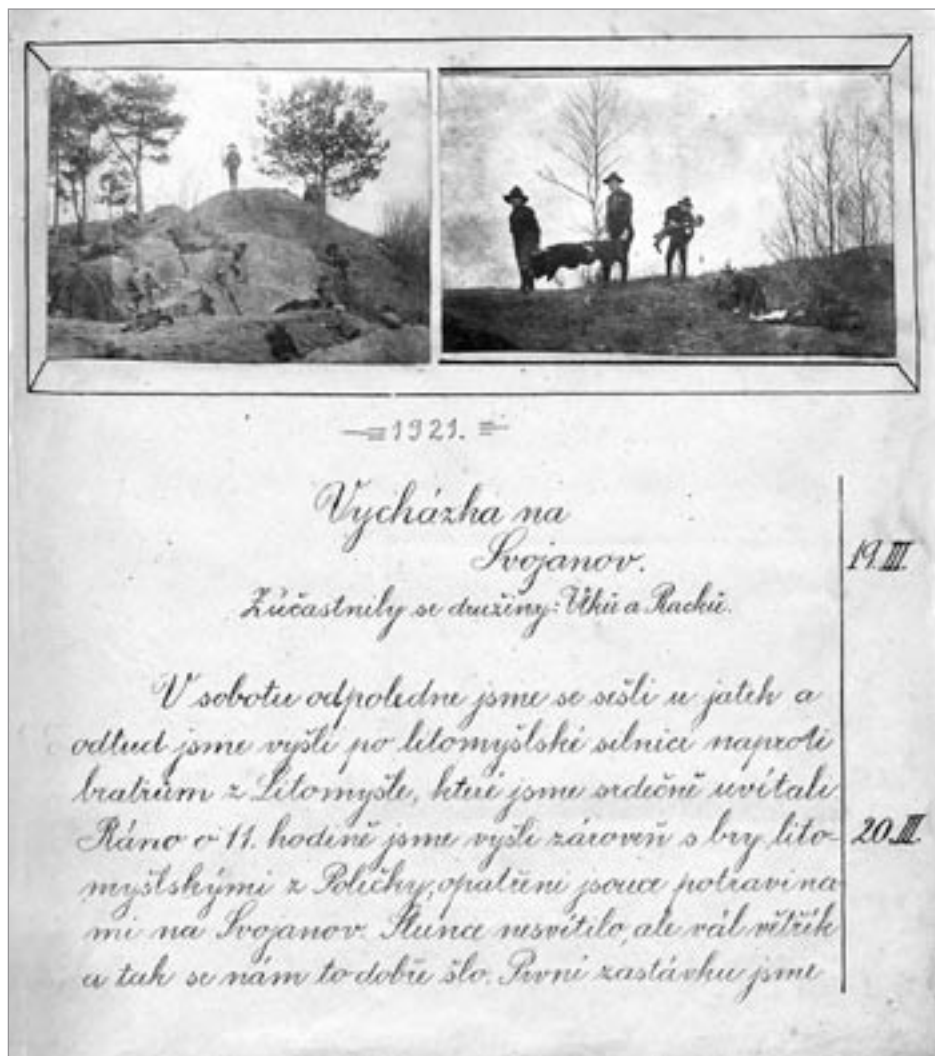 1921.
Vycházka na
Svojanov.
19. III.
Zúčastnily se družiny: Vlků a Racků.
V sobotu odpoledne jsme se sešli u jatek a
odtud jsme vyšli po litomyšlské silnici naproti
bratřím z Litomyšle, které jsme srdečně uvítali.
Ráno o 11. hodině jsme vyšli zároveň s bry lito-
20. III.
myšlskými z Poličky, opatřeni jsouce potravina
mi na Svojanov. Slunce nesvítilo, ale vál větřík
a tak se nám to dobře šlo. První zastávku jsme